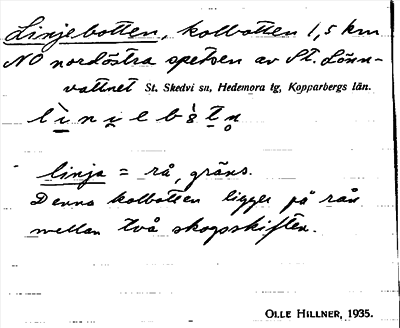 Linjebotten, kolbotten 1,5 km
NO nordöstra spetsen av St. Lönn-
vattnet St. Skedvi sn, Hedemora tg, Kopparbergs län.
linja = rå, gräns.
Denna kolbotten ligger på rån
mellan två skogsskiften.
OLLE HILLNER, 1935.